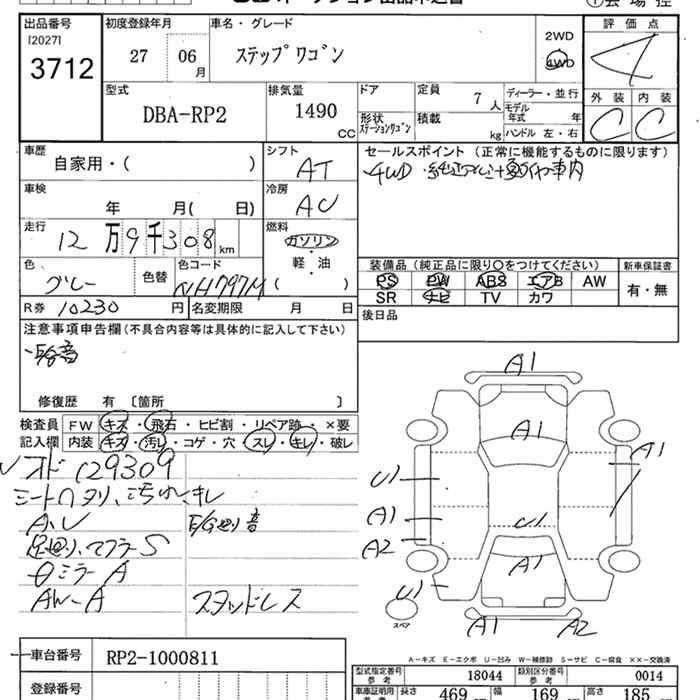 出品番号
[2027]
3712
初度登録年月
27 06 月
車名・グレード
ステップワゴン
2WD
4WD
評価点
4
外装 内装
C C
型式
DBA-RP2
排気量
1490 CC
ドア
形状
ステーションワゴン
定員
7 人
積載
kg
ディーラー・並行
モデル年式 年
ハンドル 左・右
車歴
自家用・( )
シフト
AT
セールスポイント (正常に機能するものに限ります)
車検
年 月( 日)
冷房
AC
走行
12万9千308 km
燃料
ガソリン
軽・油
( )
色
グレー
色替
色コード
NH797M
装備品 (純正品に限り○をつけてください)
新車保証書
PS PW ABS エアB AW
SR ナビ TV カワ
有・無
R券 10230 円
名変期限 月 日
後日品
注意事項申告欄(不具合内容等は具体的に記入して下さい)
修復歴 有 〔箇所 〕
検査員記入欄
FW キズ・飛石・ヒビ割・リペア跡・×要
内装 キズ・汚れ・コゲ・穴・スレ・キレ・破レ
129309
A,U
E/G廻り音
足廻り、マフラーS
ミラーA
AW-A
スタッドレス
A1
A1
A1
U1
A1
U1
A2
A1
U1
スペア
A1
A2
車台番号
RP2-1000811
登録番号
A-キズ E-エクボ U-凹み W-補修跡 S-サビ C-腐食 ××-交換済
型式指定番号 参考 18044
類別区分番号 参考 0014
車庫証明用
長さ 469
幅 169
高さ 185